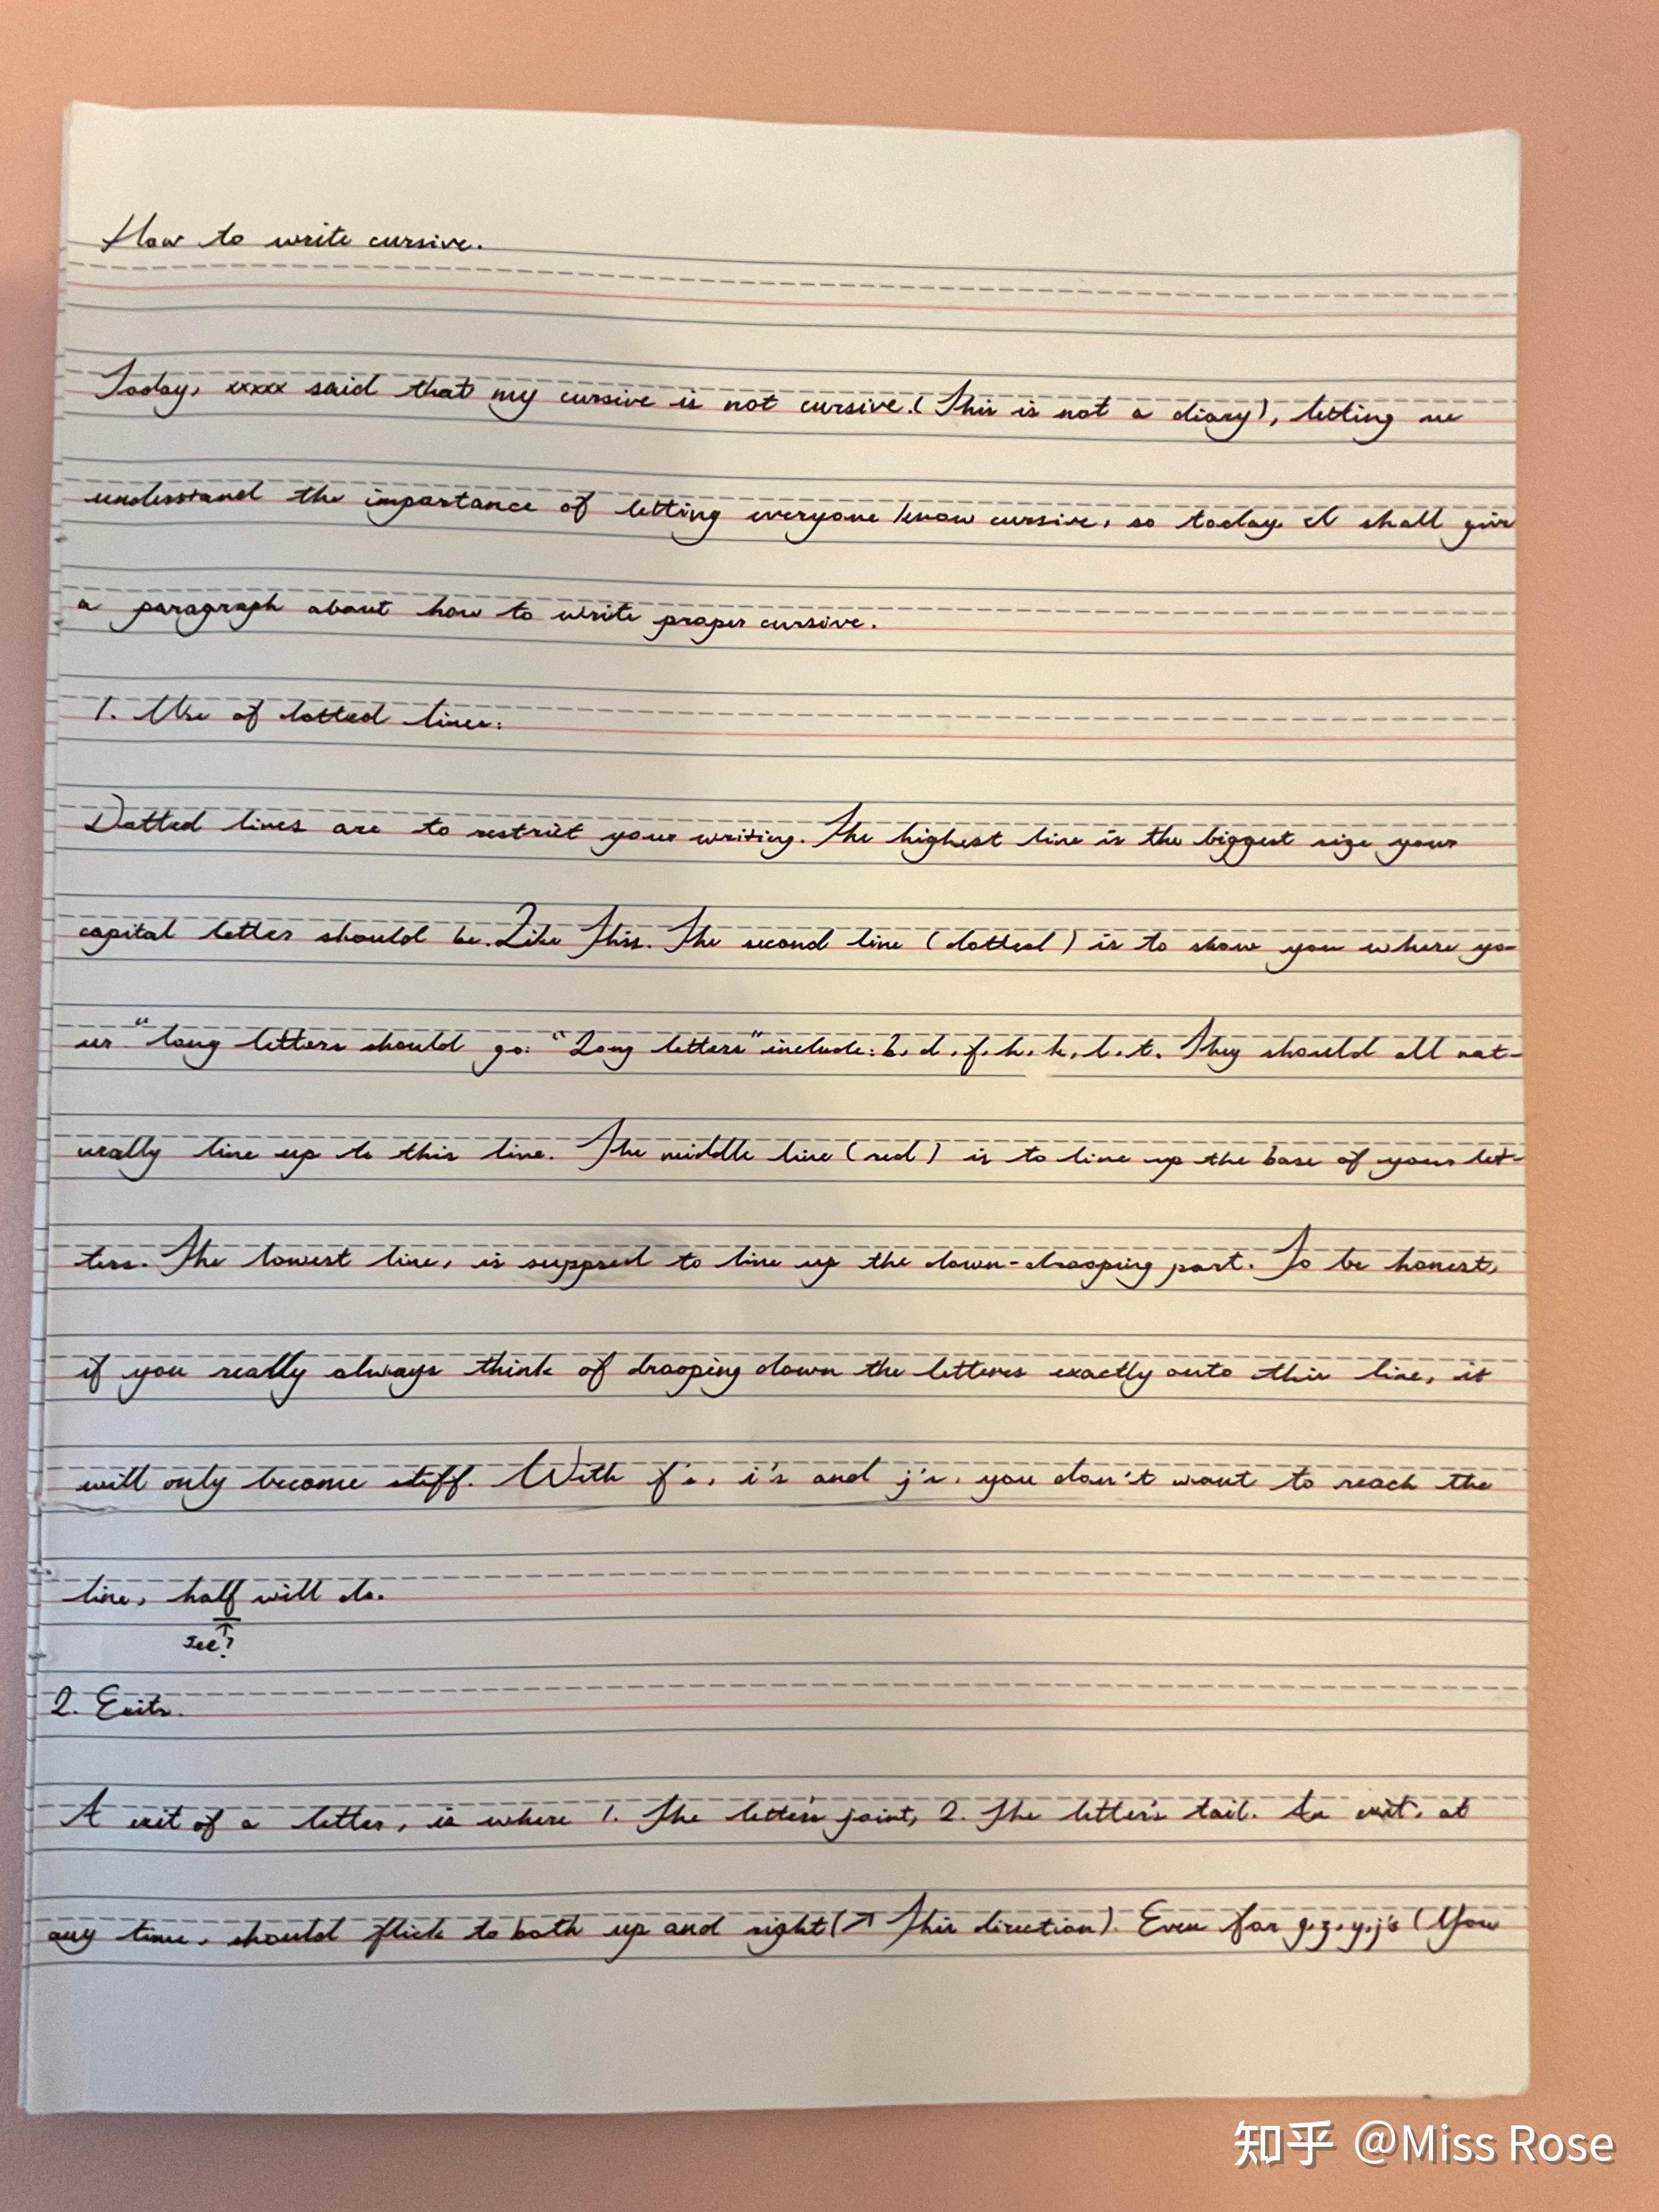 How to write cursive.
Today, xxxxx said that my cursive is not cursive.(This is not a diary), letting me
understand the importance of letting everyone know cursive, so today I shall give
a paragraph about how to write proper cursive.
1. Use of dotted lines:
Dotted lines are to restrict your writing. The highest line is the biggest size your
capital letter should be. Like This. The second line (dotted) is to show you where yo-
ur "long letters should go: "Long letters" include: b, d, f, h, k, l, t. They should all nat-
urally line up to this line. The middle line (red) is to line up the base of your let-
ters. The lowest line, is suppsed to line up the down-drooping part. To be honest,
if you really always think of drooping down the letteres exactly onto this line, it
will only become stiff. With f's, i's and j's, you don't want to reach the
line, half will do.
see?
2. Exits.
A exit of a letter, is where 1. The letter's joint, 2. The letter's tail. An exit, at
any time, should flick to both up and right(↗ This direction). Even for g,z,y,j's (You
知乎 @Miss Rose